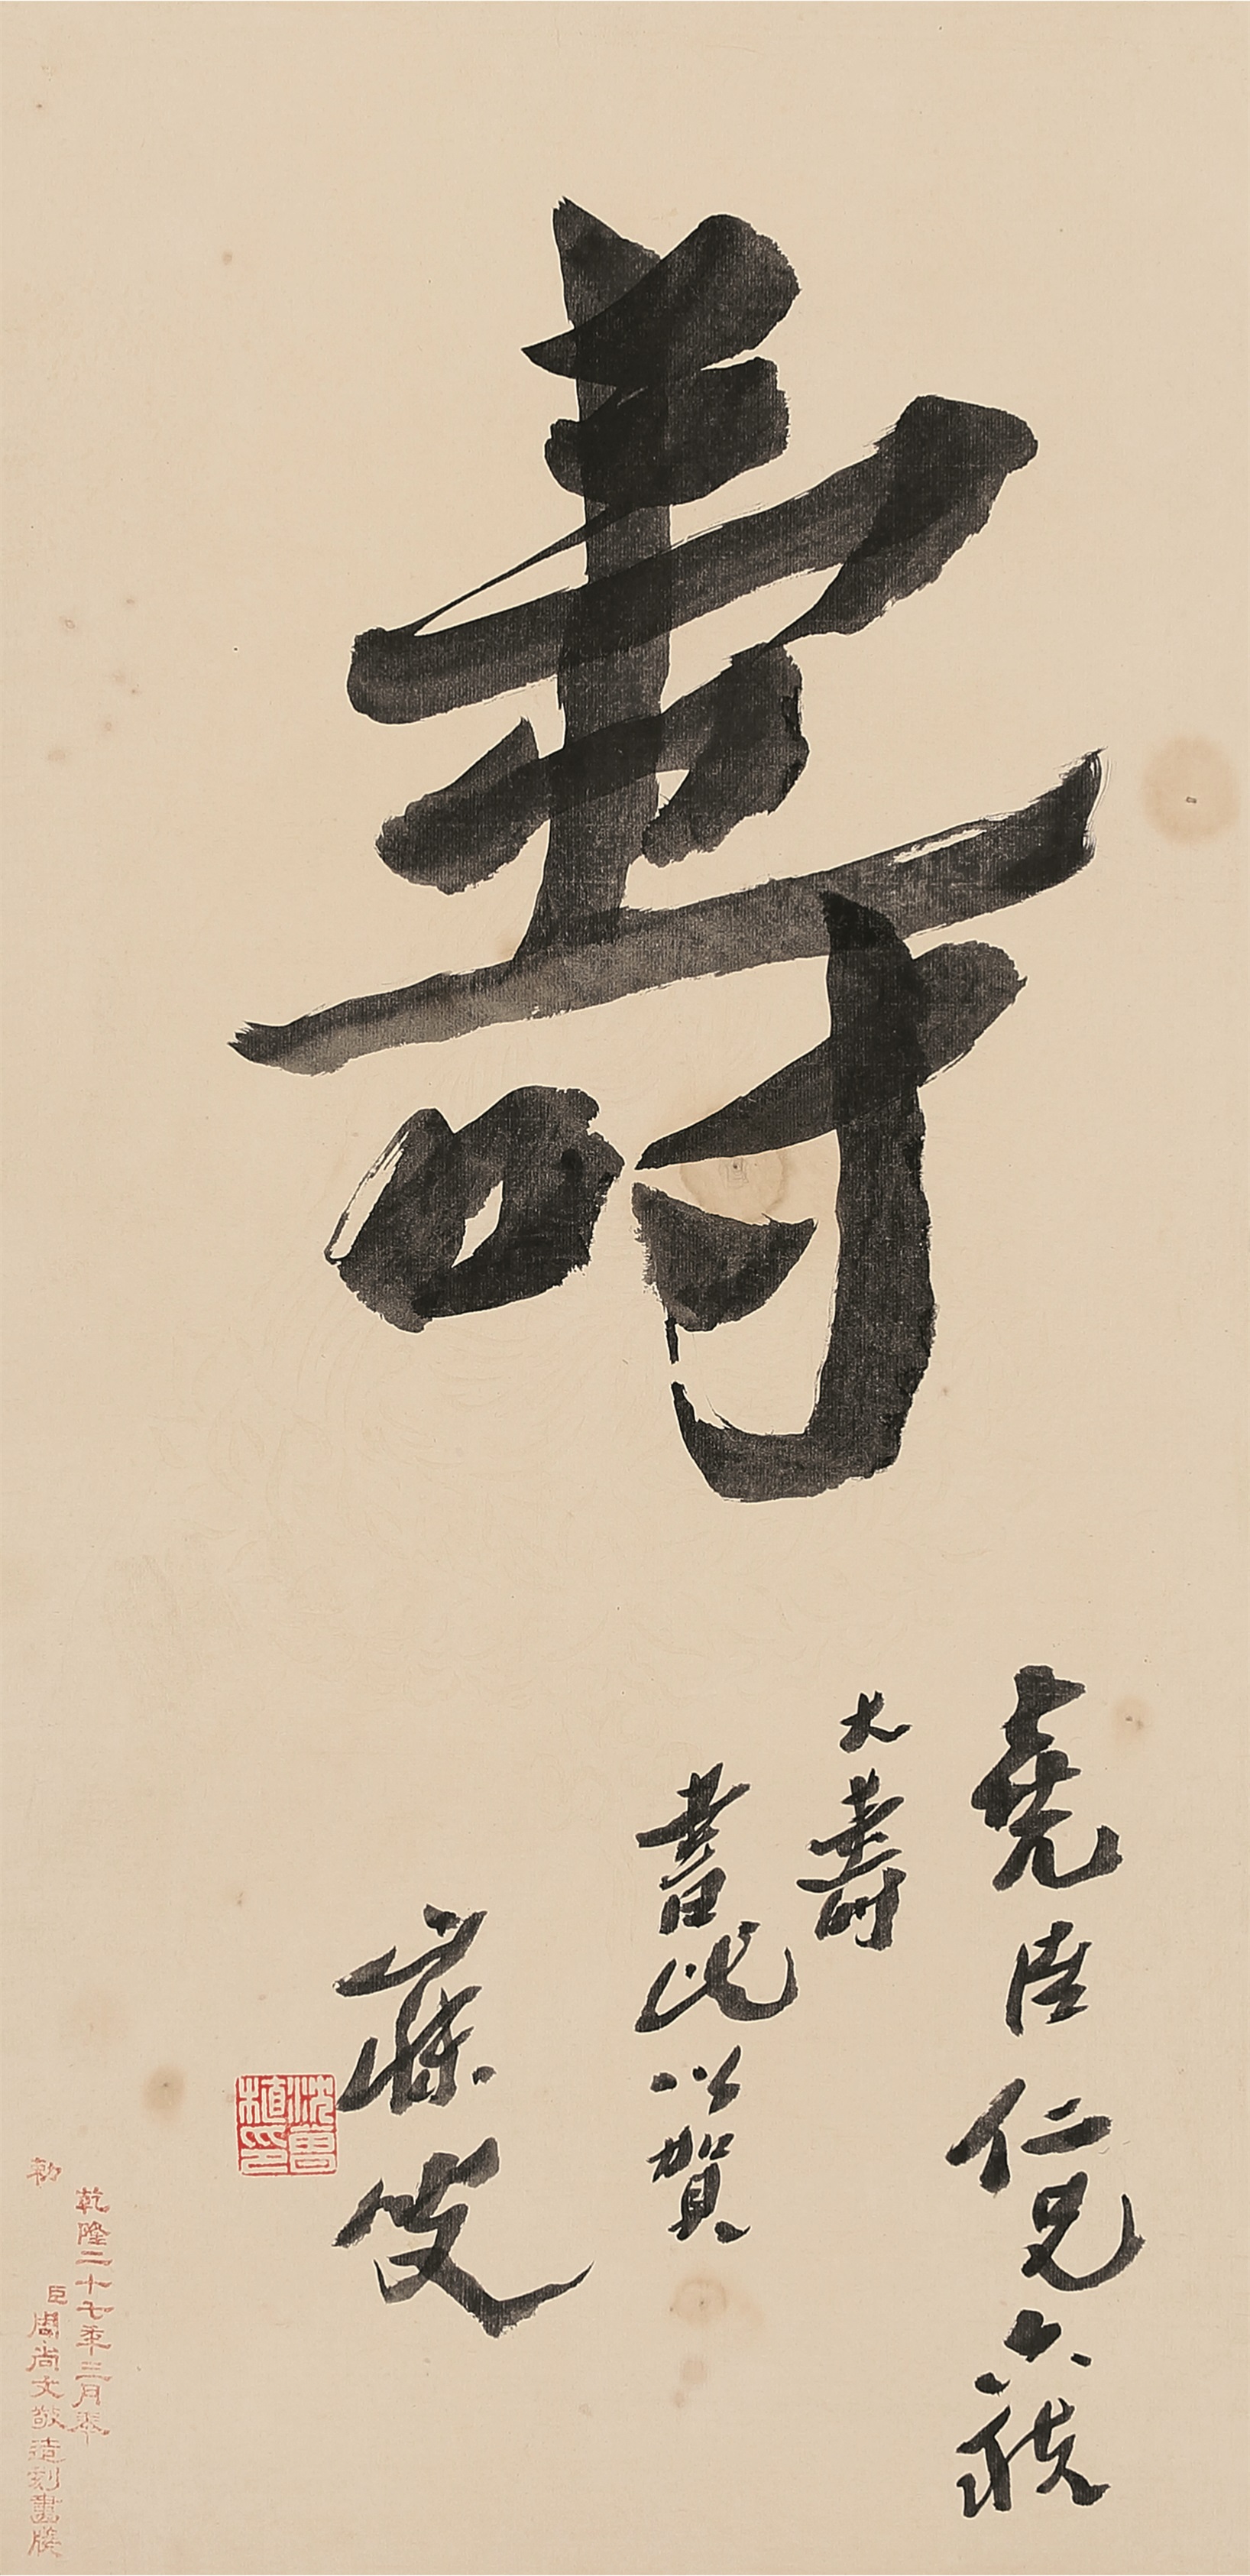 壽
堯臣仁兄六秩
大壽
書此以賀
寐叟
沈曾植印
乾隆二十七年三月奉
勅
臣周尚文敬造刻畫牋